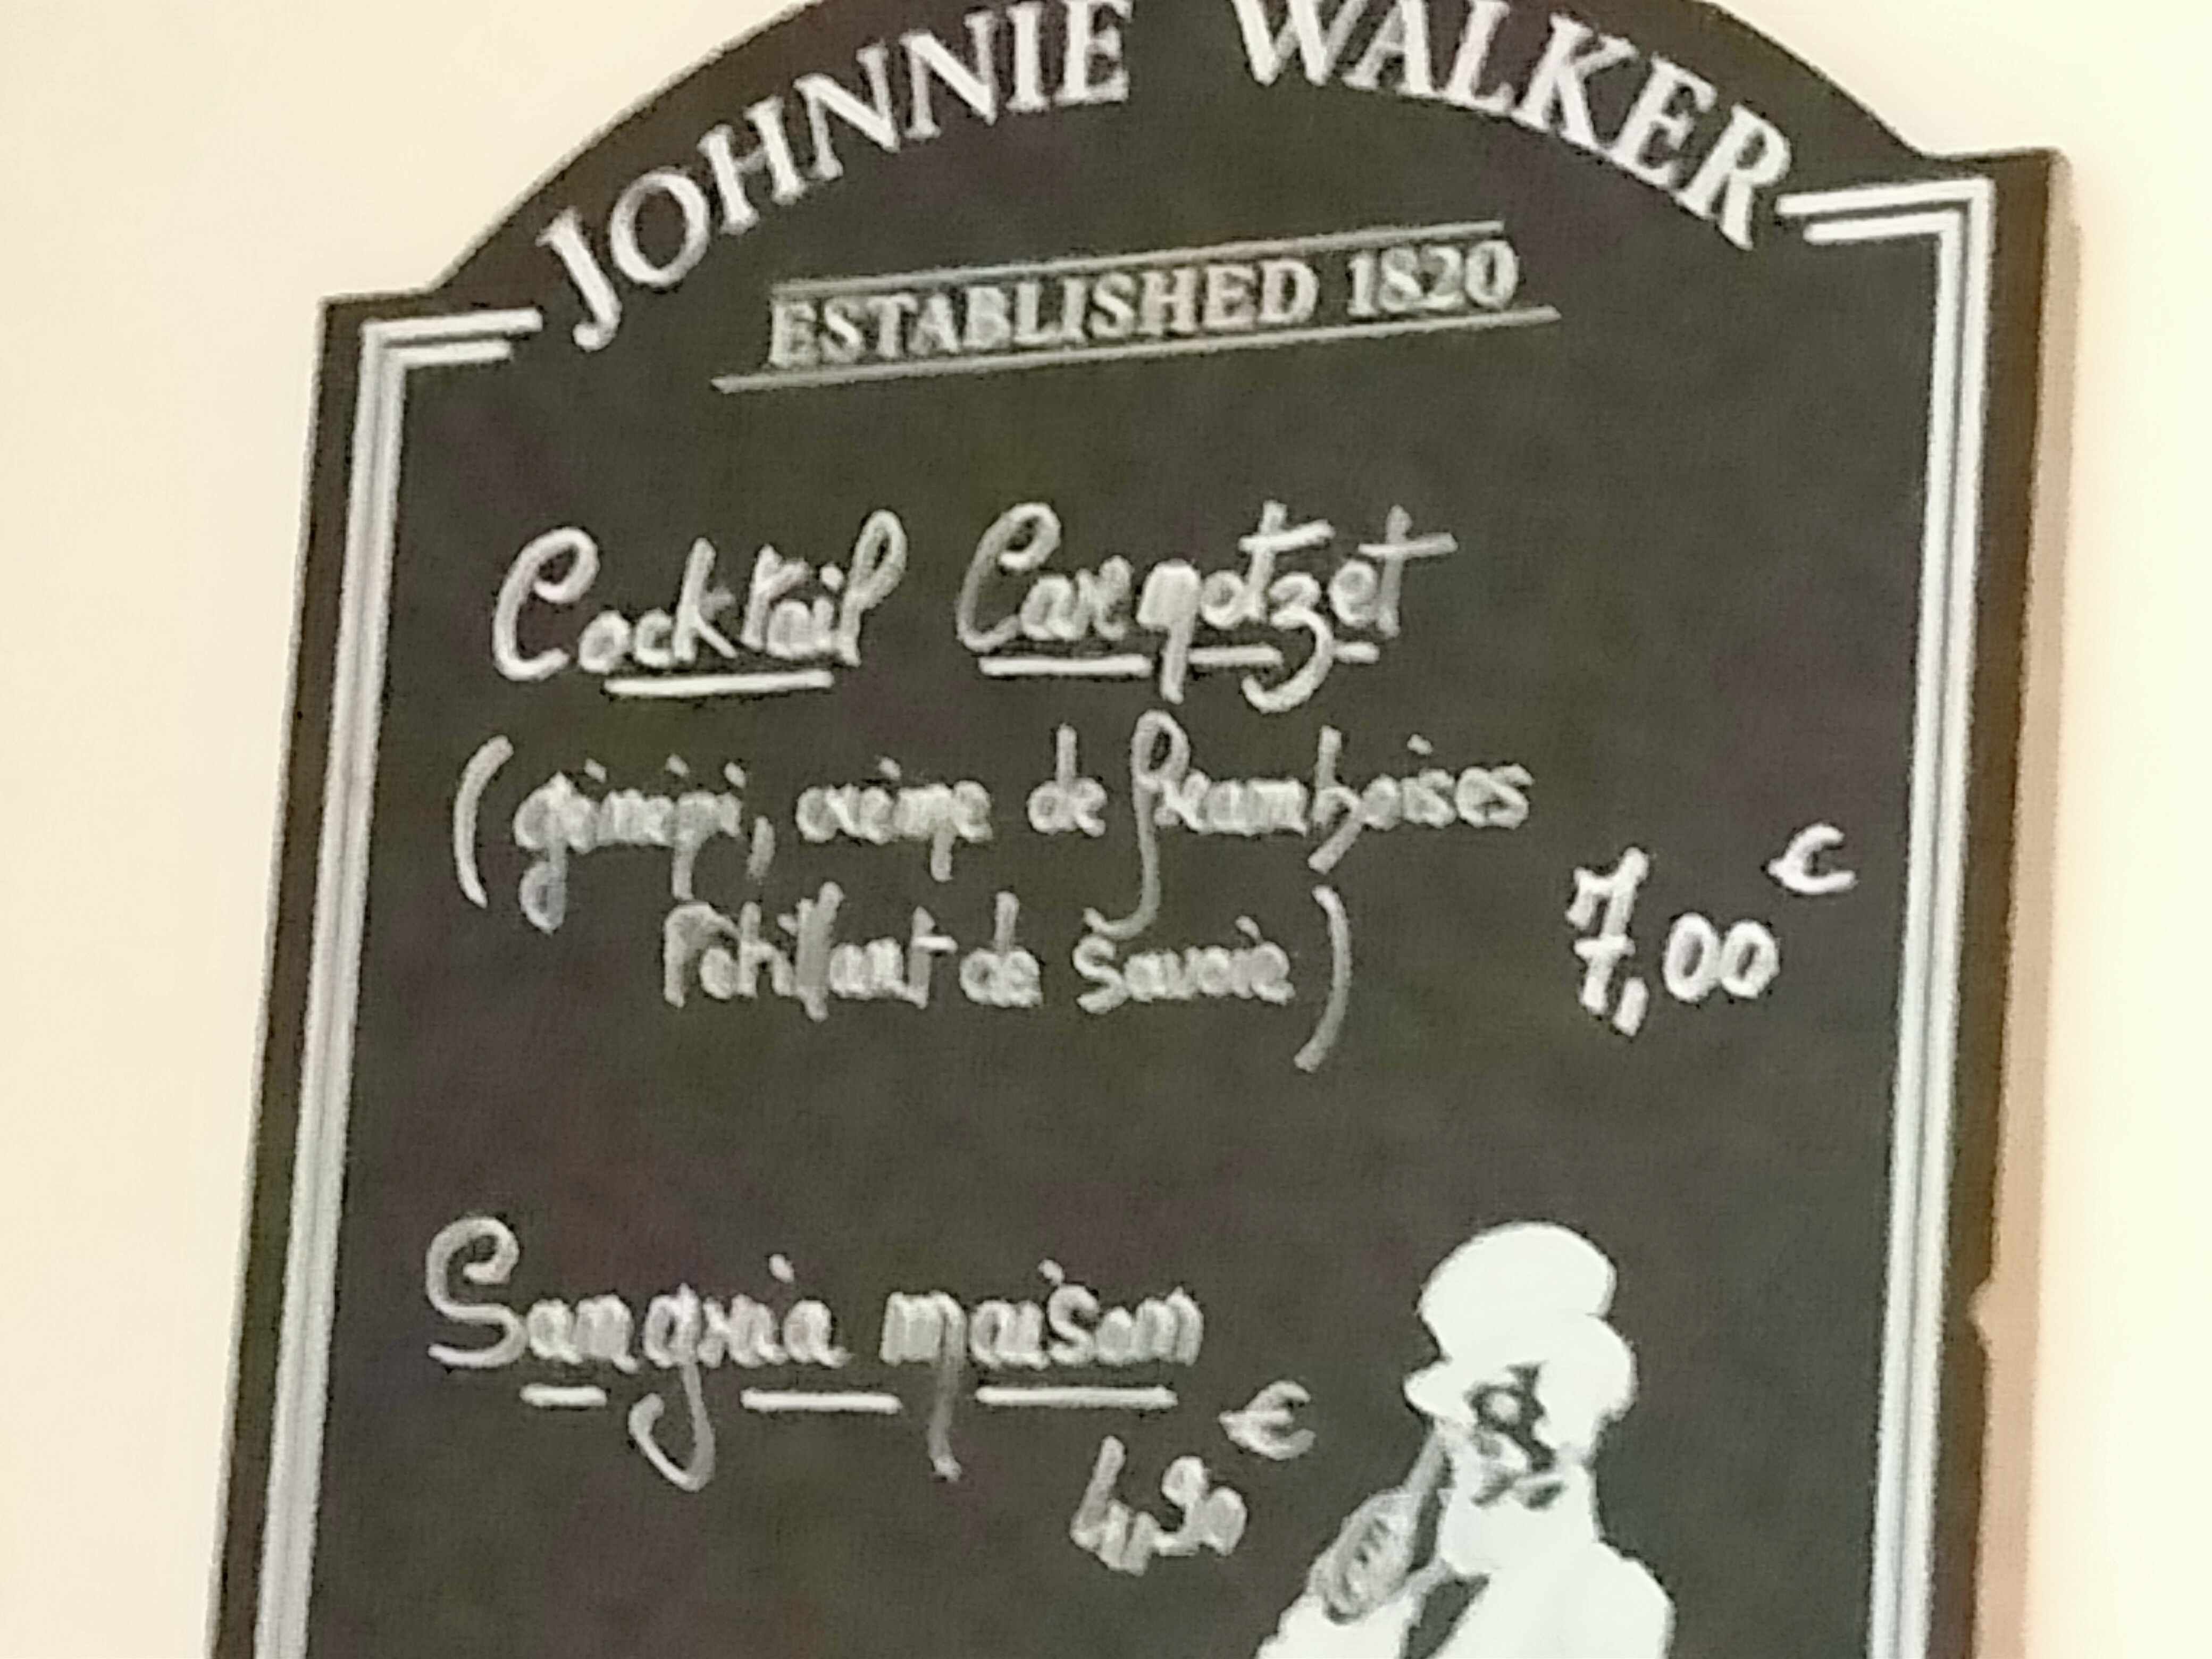 JOHNNIE WALKER
ESTABLISHED 1820
Cocktail Cargotzet
(génépi, crème de framboises
Pétillant de Savoie)
7,00 €
Sangria maison
4,90 €